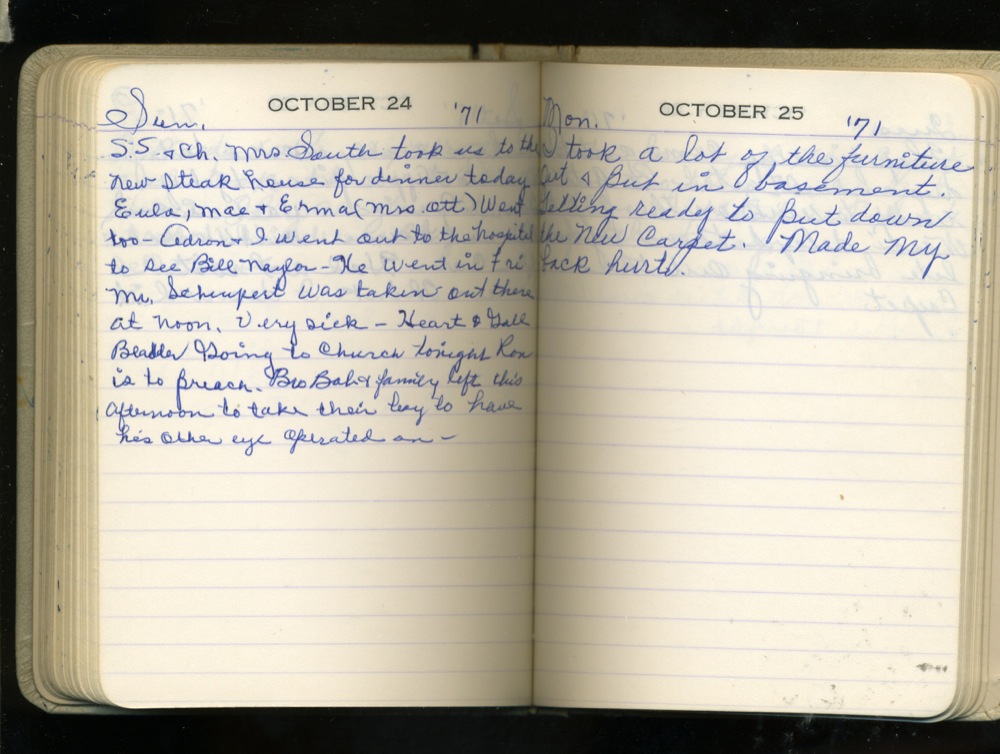 OCTOBER 24 '71
Sun.
S.S. & Ch. Mrs. South took us to the
new Steak house for dinner today
Eula, Mae & Erma (Mrs. Ott) Went
too - Adron & I went out to the hospital
to see Bill Naylor - He went in Fri
Mr. Schupert was taken out there
at noon. Very sick - Heart & Gall
Bladder Going to Church tonight Ron
is to preach. Bro Bah & family left this
afternoon to take their boy to have
his other eye operated on -
OCTOBER 25 '71
Mon.
I took a lot of the furniture
out & put in basement.
Getting ready to put down
the New Carpet. Made My
back hurt.